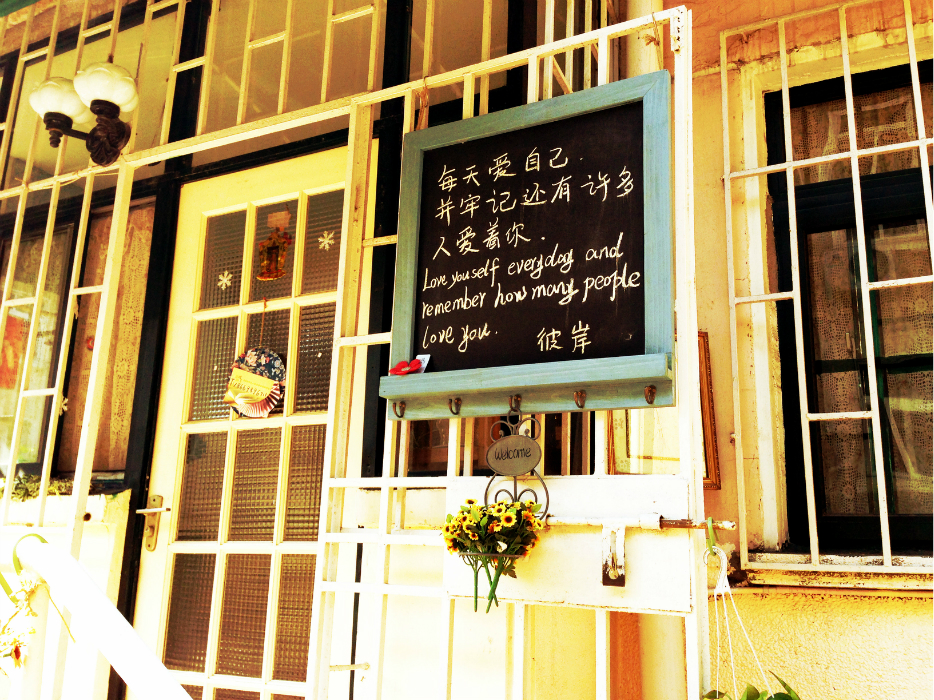 每天爱自己.
并牢记还有许多
人爱着你.
Love youself everyday and
remember how many people
love you.
彼岸
welcome